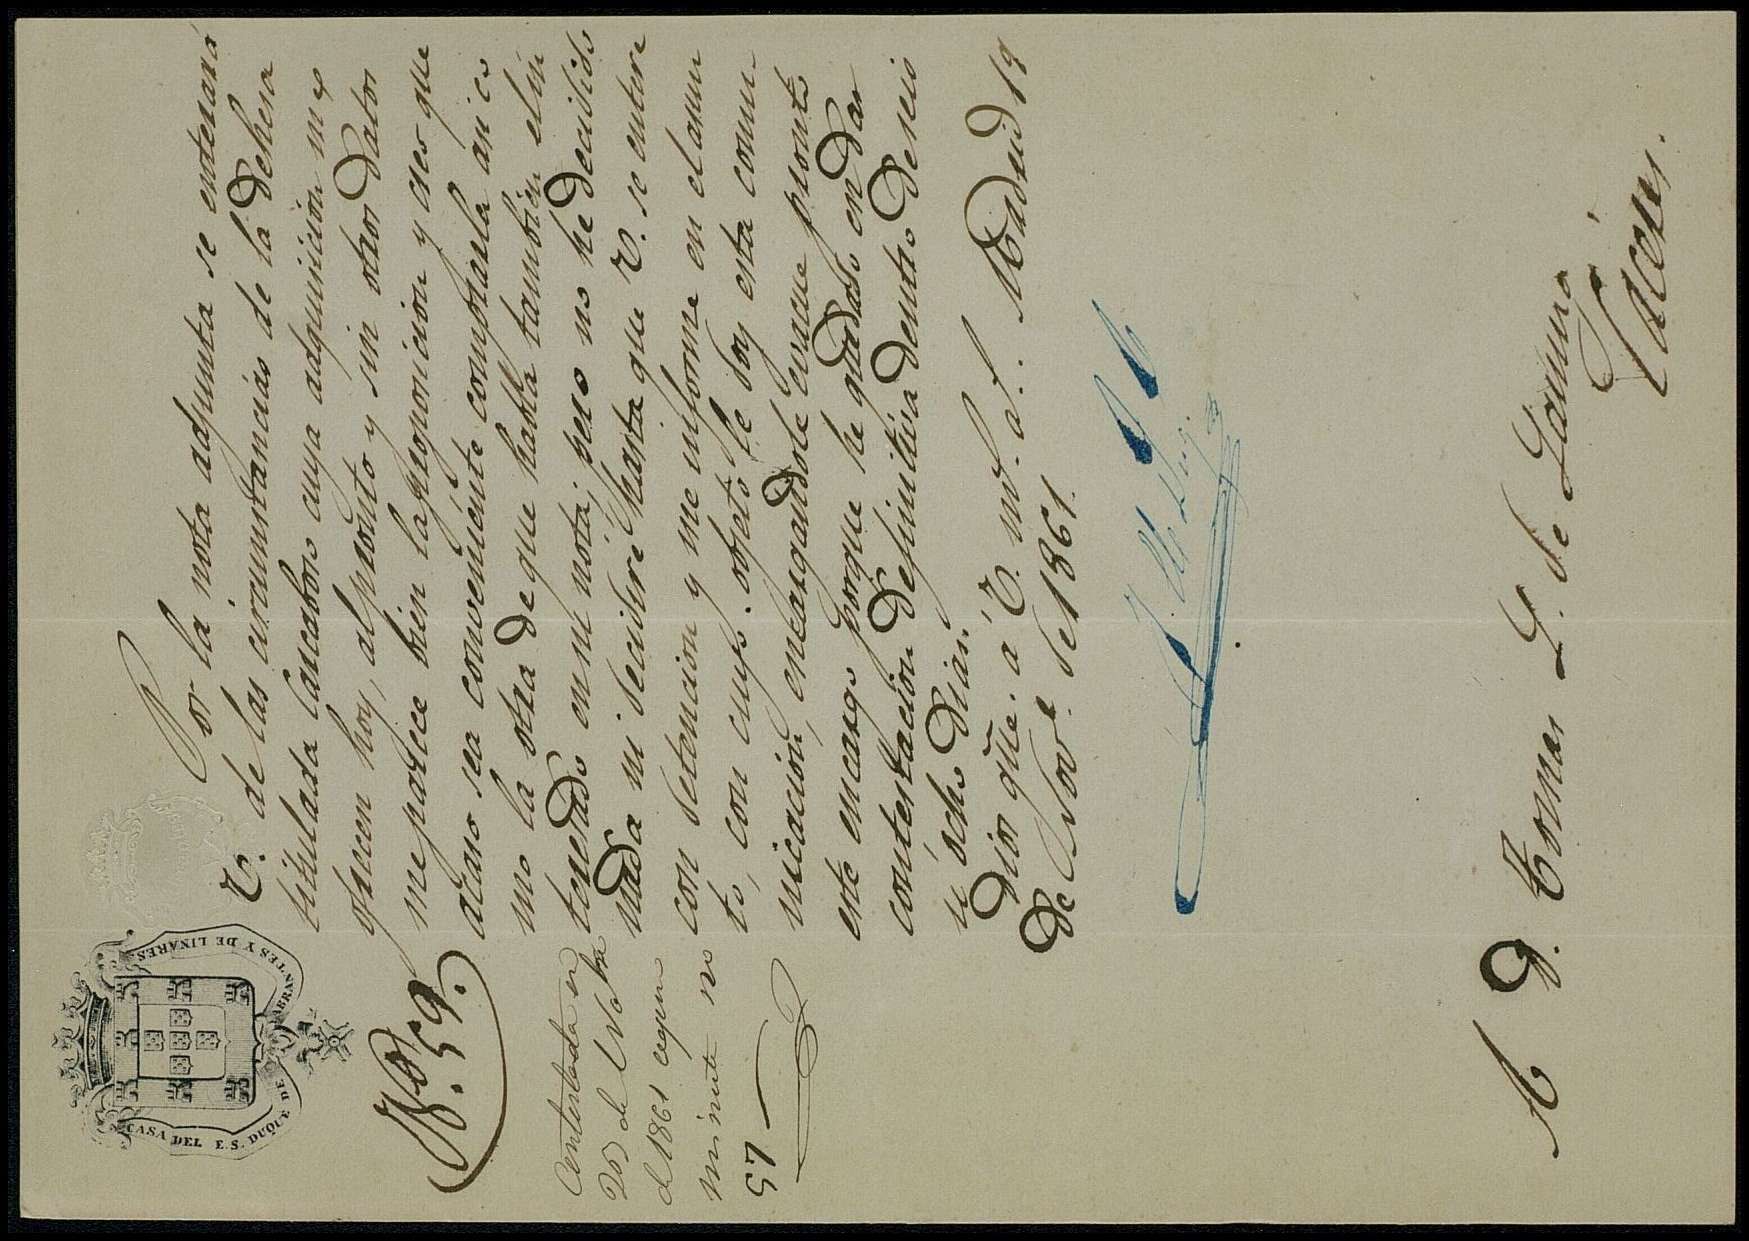 CASA DEL E. S. DUQUE DE ABRANTES Y DE LINARES
Nº 59.
Por la nota adjunta se enterará
V. de las circunstancias de la dehesa
titulada Cascabos cuya adquisicion me
ofrecen hoy, al pronto y sin otros datos
me parece bien la proposicion y creo que
acaso sea conveniente comprarla asi co
mo la otra de que habla tambien el in
teresado en su nota; pero no he decidido
nada ni decidiré hasta que V. se entere
con detencion y me informe en el asun
to, con cuyo objeto le doy esta comu
nicacion, encargandole evacue pronto
este encargo porque he quedado en dar
contestacion definitiva dentro de seis
u ocho dias.
Dios gũe. a V. ms. as. Madrid 19
de Novᵉ. de 1861.
Contestada en
20 de Nobre
d 1861 segun
minuta no
57
A D. Tomas L. de Sauma
Cáceres.